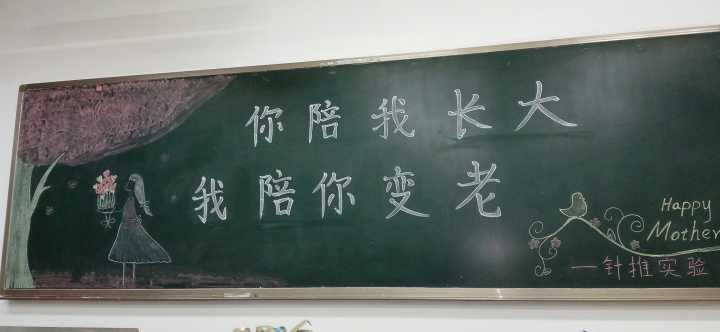 你陪我长大
我陪你变老
Happy
Mother
一针推实验